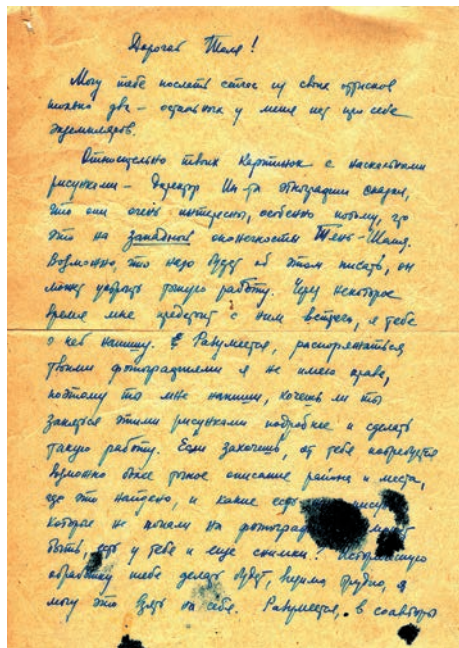 Дорогая Таля!
Могу тебе послать сейчас из своих оттисков
только два – остальных у меня нет при себе
экземпляров.
Относительно твоих картинок с наскальными
рисунками – директор Ин-та этнографии сказал,
что они очень интересны, особенно потому, что
это на западной оконечности Тянь-Шаня.
Возможно, что надо будет об этом писать, он
может такую работу. Через некоторое
время мне предстоит с ним встреча, я тебе
о ней напишу. Разумеется, распоряжаться
твоими фотографиями я не имею права,
поэтому ты мне напиши, хочешь ли ты
заняться этими рисунками подробнее и сделать
такую работу. Если захочешь, от тебя потребуется
возможно более точное описание района и места,
где это найдено, и какие есть
которые не попали на
быть, есть у тебя и еще снимки?
обработку тебе делать будет, видимо трудно, я
могу это взять на себя. Разумеется, в соавторы